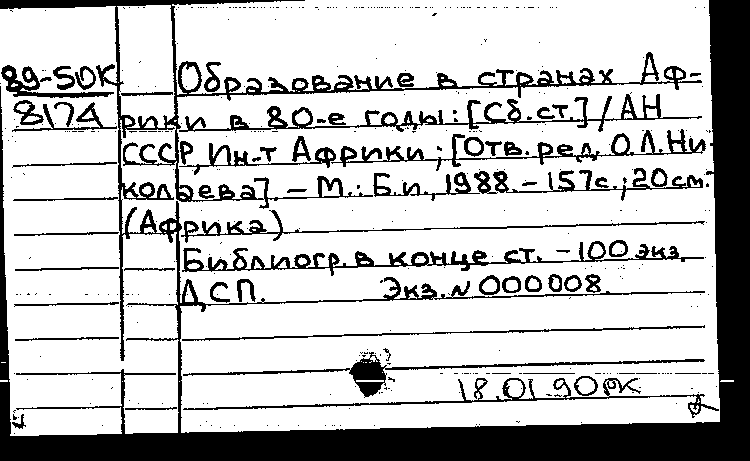 89-5ОК Образование в странах Аф-
8174 рики в 80-е годы: [Сб. ст.] / АН
СССР, Ин-т Африки; [Отв. ред. О.Л. Ни-
колаева]. – М.: Б.и., 1988. – 157с.; 20см. –
(Африка).
Библиогр. в конце ст. – 100 экз.
ДСП. Экз. N 000008.
18.01.90